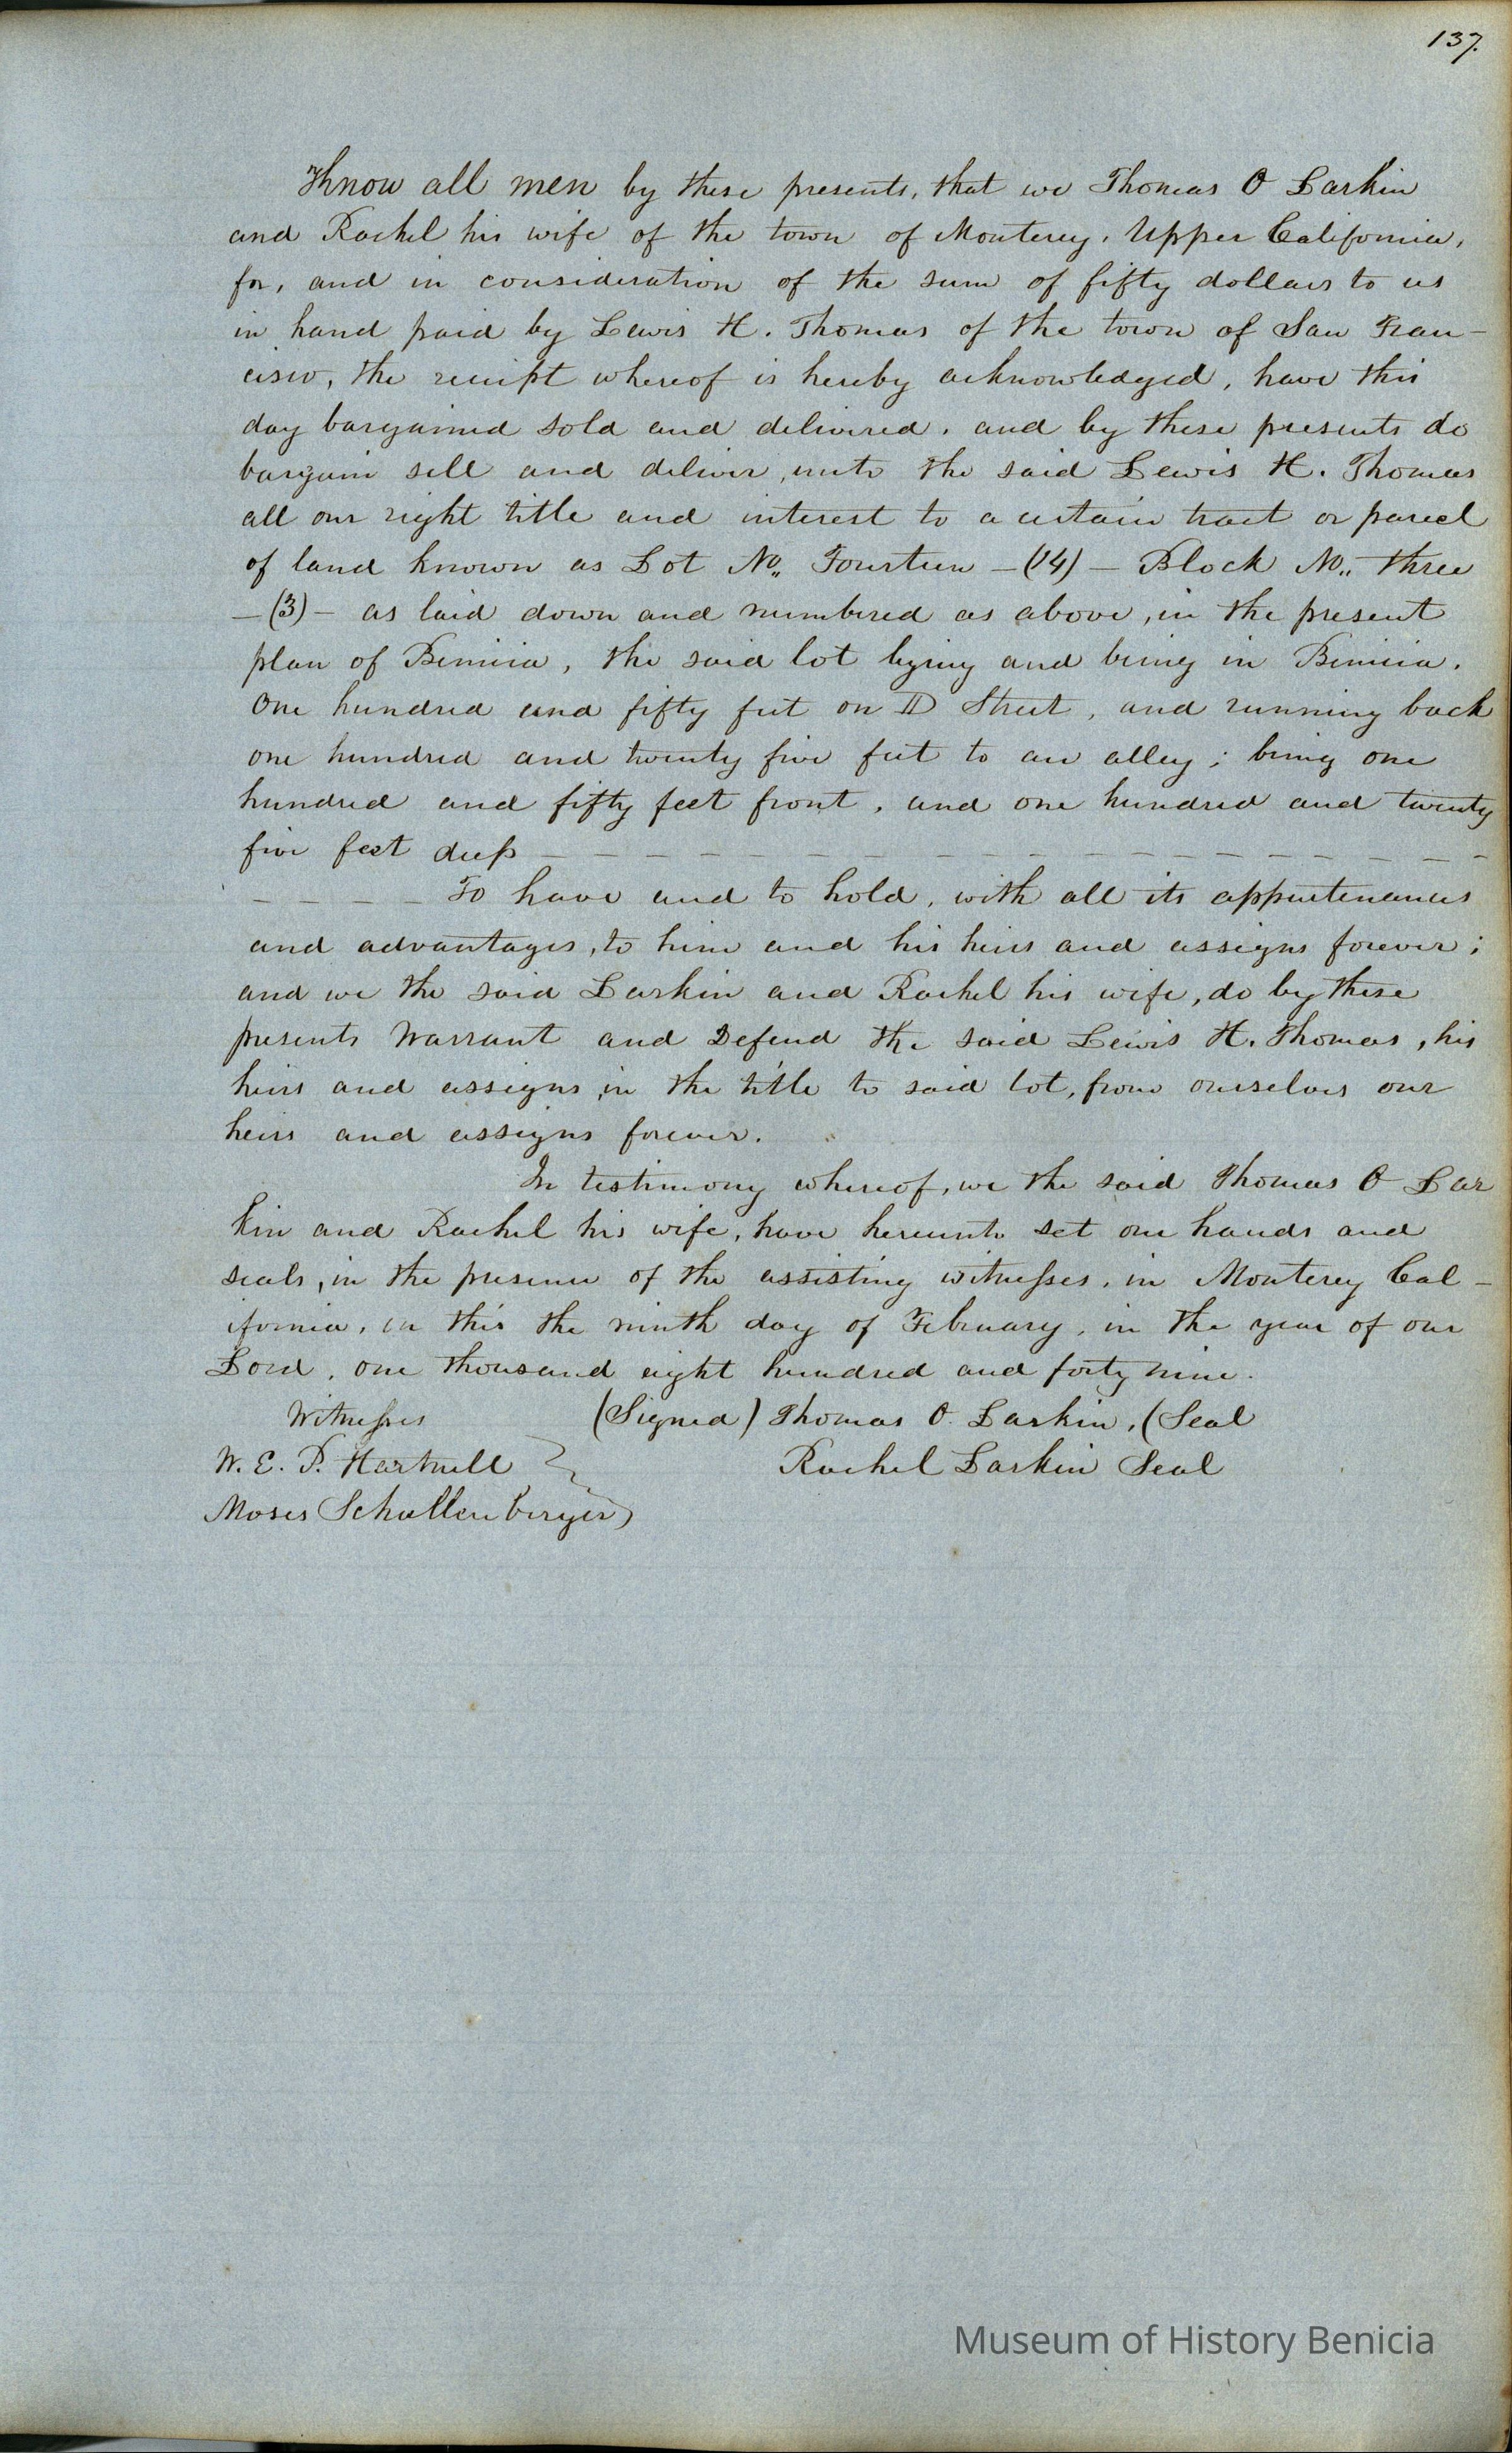 137.
Know all men by these presents, that we Thomas O Larkin
and Rachel his wife of the town of Monterey, Upper California,
for, and in consideration of the sum of fifty dollars to us
in hand paid by Lewis H. Thomas of the town of San Fran-
cisco, the receipt whereof is hereby acknowledged, have this
day bargained sold and delivered, and by these presents do
bargain sell and deliver, unto the said Lewis H. Thomas
all our right title and interest to a certain tract or parcel
of land known as Lot No,, Fourteen - (14) - Block No,, three
- (3) - as laid down and numbered as above, in the present
plan of Benicia, the said lot lying and being in Benicia,
One hundred and fifty feet on D Street, and running back
one hundred and twenty five feet to an alley; being one
hundred and fifty feet front, and one hundred and twenty
five feet deep - - - - - - - - - - - - - - - - - -
- - - - To have and to hold, with all its appurtenances
and advantages, to him and his heirs and assigns forever;
and we the said Larkin and Rachel his wife, do by these
presents Warrant and Defend the said Lewis H. Thomas, his
heirs and assigns, in the title to said lot, from ourselves our
heirs and assigns forever.
In testimony whereof, we the said Thomas O Lar
kin and Rachel his wife, have hereunto set our hands and
seals, in the presence of the assisting witnesses, in Monterey Cal-
ifornia, on this the ninth day of February, in the year of our
Lord, one thousand eight hundred and forty nine.
Witnesses (Signed) Thomas O. Larkin, (Seal
W. E. P. Hartnell Rachel Larkin Seal
Moses Schallenberger
Museum of History Benicia